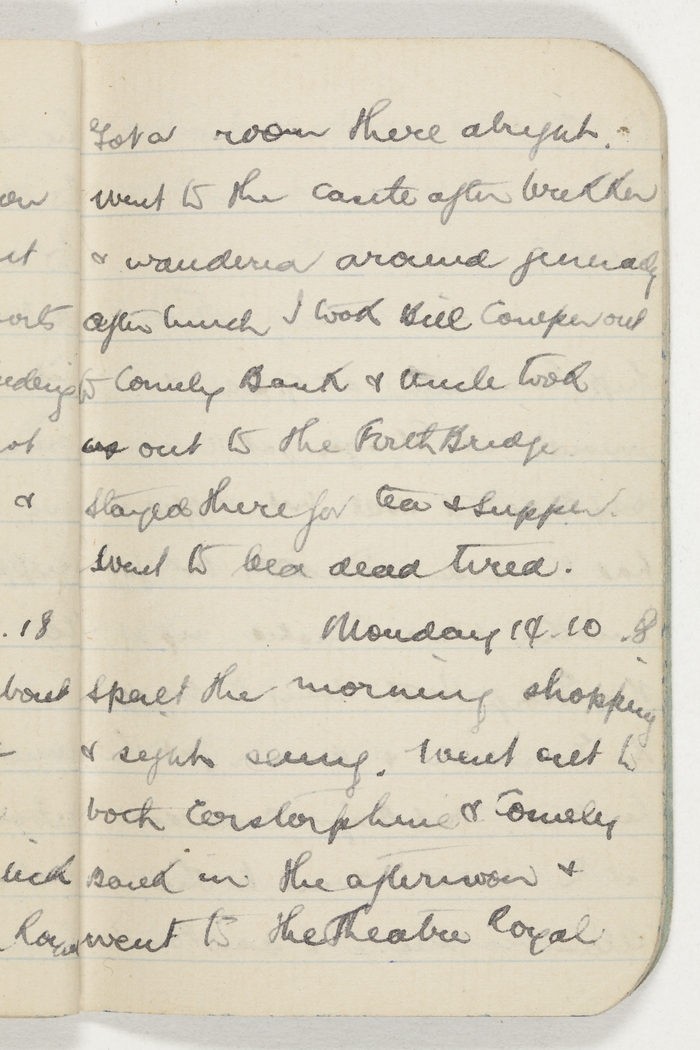 on
st
orts
nding
ot
&
.18
bout
lick
Royal
Got a room there alright.
went to the castle after brekker
& wandered around generally
after lunch I took Bill Cowper out
to Comely Bank & Uncle took
us out to the Forth Bridge
stayed there for tea & supper.
went to bed dead tired.
Monday 14.10.8
Spent the morning shopping
& sight seeing. Went out to
both Corstorphine & Comely
Bank in the afternoon &
went to the Theatre Royal